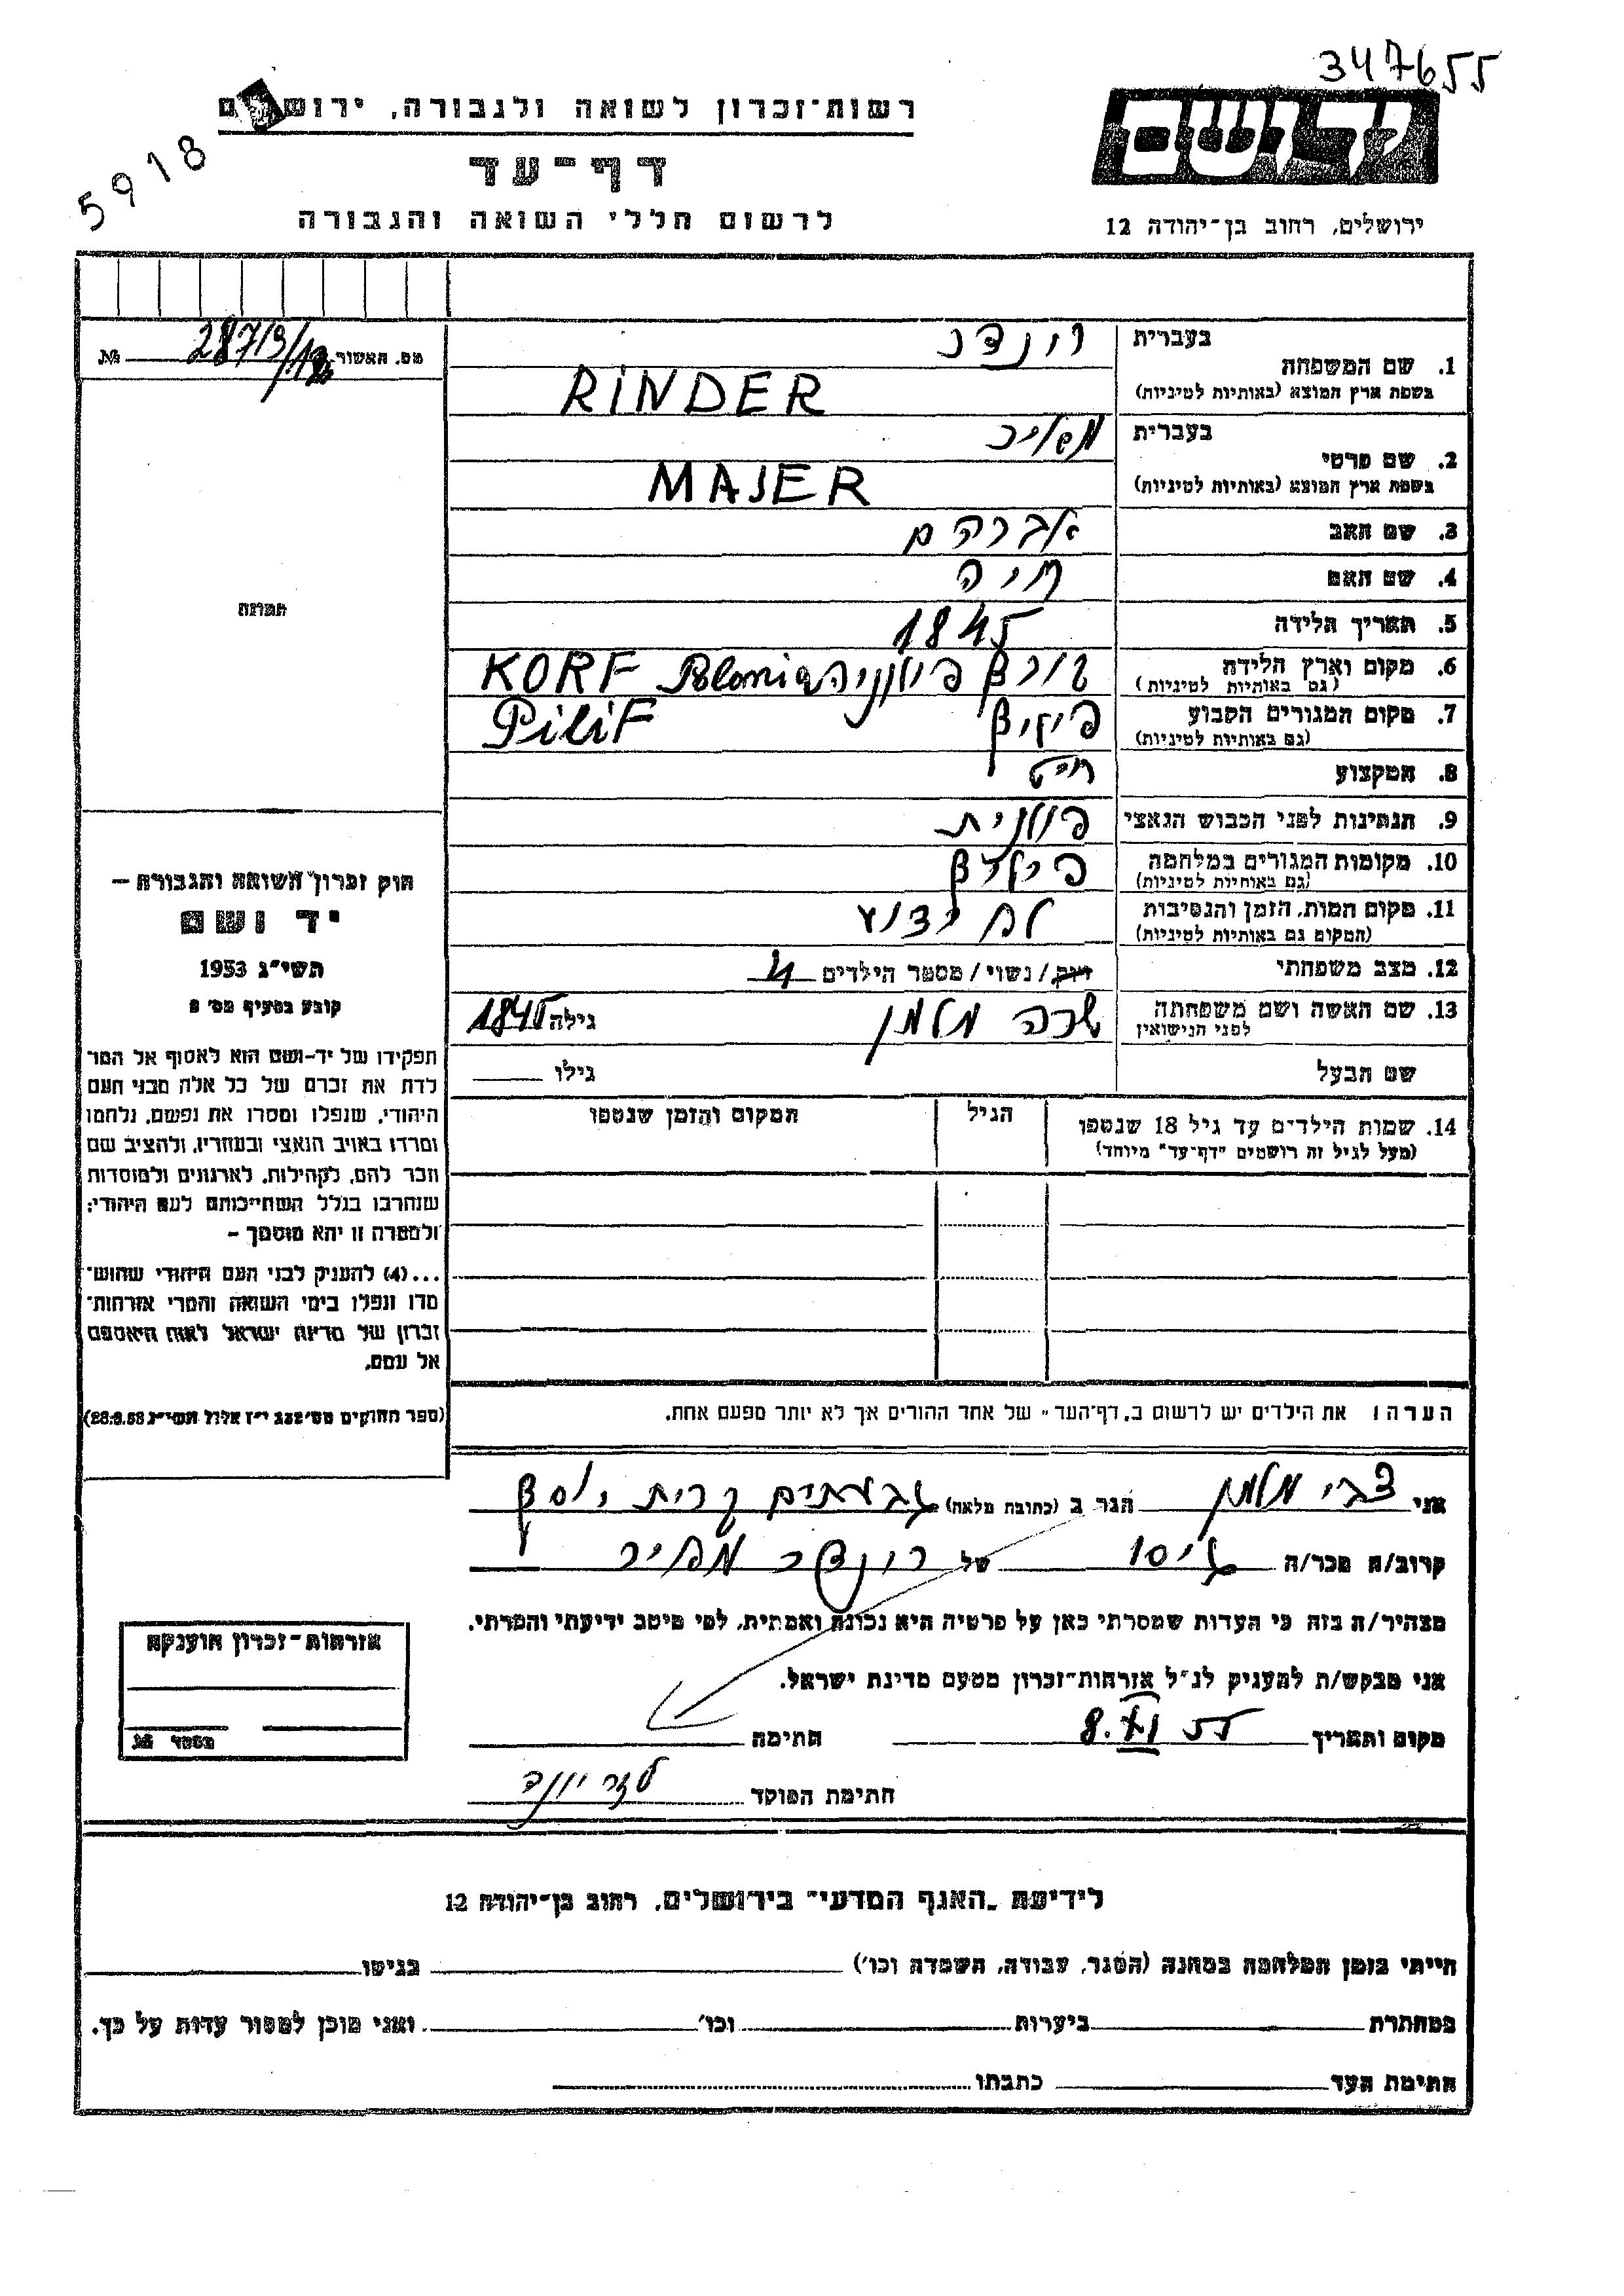 347655
רשות-זכרון לשואה ולגבורה, ירושלים
5918
דף-עד
לרשום חללי השואה והגבורה
יד ושם
ירושלים, רחוב בן-יהודה 12
מס. האשור № 28713/
1. שם המשפחה
בעברית רינדר
בשפת ארץ המוצא (באותיות לטיניות) RiNDER
2. שם פרטי
בעברית
בשפת ארץ המוצא (באותיות לטיניות) MAJER
3. שם האב אברהם
4. שם האם חיה
5. תאריך הלידה 1845
6. מקום וארץ הלידה פולניה Polonia KORF
(גם באותיות לטיניות)
7. מקום המגורים הקבוע PiliF
(גם באותיות לטיניות)
8. המקצוע חייט
9. הנתינות לפני הכבוש הנאצי פולנית
10. מקומות המגורים במלחמה
(גם באותיות לטיניות)
11. מקום המות, הזמן והנסיבות לא ידוע
(המקום גם באותיות לטיניות)
12. מצב משפחתי רווק / נשוי / מספר הילדים 4
13. שם האשה ושם משפחתה שרה מלמן גילה 1845
לפני הנישואין
שם הבעל גילו
14. שמות הילדים עד גיל 18 שנספו הגיל המקום והזמן שנספו
(מעל לגיל זה רושמים "דף-עד" מיוחד)
הערה: את הילדים יש לרשום ב"דף-העד" של אחד ההורים אך לא יותר מפעם אחת.
תמונה
חוק זכרון השואה והגבורה —
יד ושם
תשי"ג 1953
קובע בסעיף מס' 2
תפקידו של יד-ושם הוא לאסוף אל המו־
לדת את זכרם של כל אלה מבני העם
היהודי, שנפלו ומסרו את נפשם, נלחמו
ומרדו באויב הנאצי ובעוזריו, ולהציב שם
וזכר להם, לקהילות, לארגונים ולמוסדות
שנחרבו בגלל השתייכותם לעם היהודי;
ולמטרה זו יהא מוסמך —
...(4) להעניק לבני העם היהודי שהוש־
מדו ונפלו בימי השואה והמרי אזרחות־
זכרון של מדינת ישראל לאות היאספם
אל עמם.
(ספר החוקים מס' 132 י"ז אלול תשי"ג 28.8.53)
אני צבי מלמן הגר ב (כתובת מלאה) גבעתים קרית יוסף
קרוב/ה מכר/ה גיסו של רינדר מאיר
מצהיר/ה בזה כי העדות שמסרתי כאן על פרטיה היא נכונה ואמתית, לפי מיטב ידיעתי והכרתי.
אני מבקש/ת להעניק לנ"ל אזרחות-זכרון מטעם מדינת ישראל.
מקום ותאריך 8.XI 55 חתימה
חתימת הפוקד
אזרחות-זכרון הוענקה
מספר №
לידיעת "האגף המדעי" בירושלים, רחוב בן-יהודה 12
הייתי בזמן המלחמה במחנה (הסגר, עבודה, השמדה וכו') בגיטו
במחתרת ביערות וכו' ואני מוכן למסור עדות על כך.
חתימת העד כתבתו